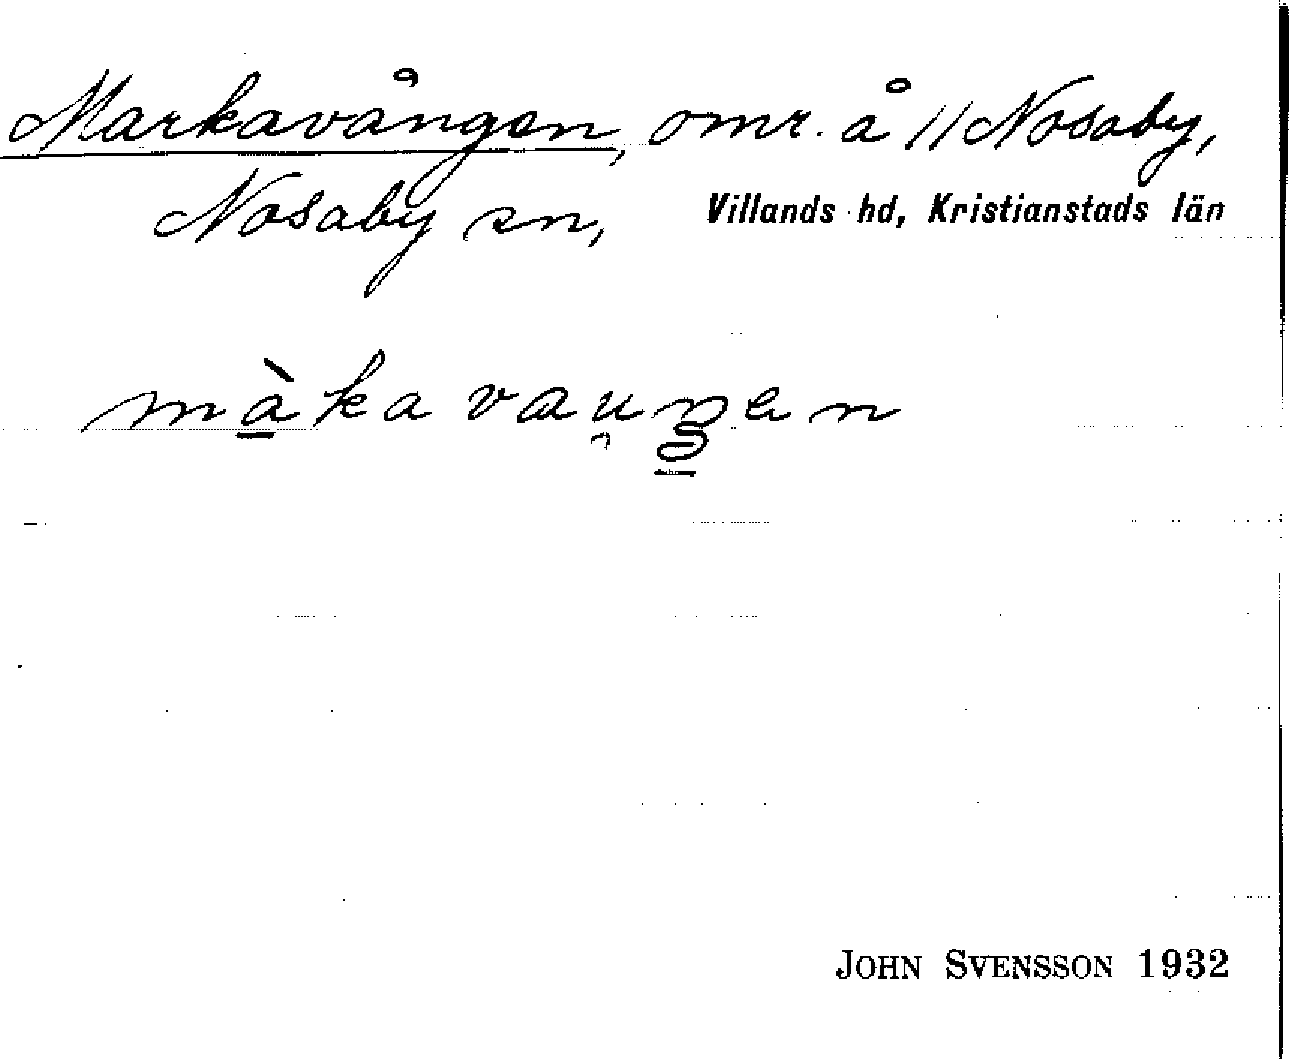 Markavången, omr. å //Nosaby,
Nosaby sn, Villands hd, Kristianstads län
màkavaųŋen
JOHN SVENSSON 1932